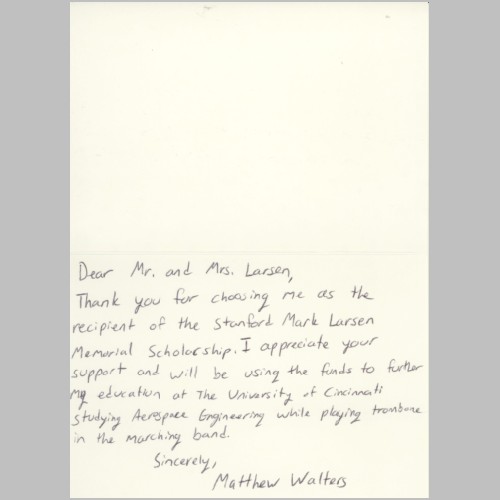 Dear Mr. and Mrs. Larsen,
Thank you for choosing me as the
recipient of the Stanford Mark Larsen
Memorial Scholarship. I appreciate your
support and will be using the funds to further
my education at The University of Cincinnati
studying Aerospace Engineering while playing trombone
in the marching band.
Sincerely,
Matthew Walters